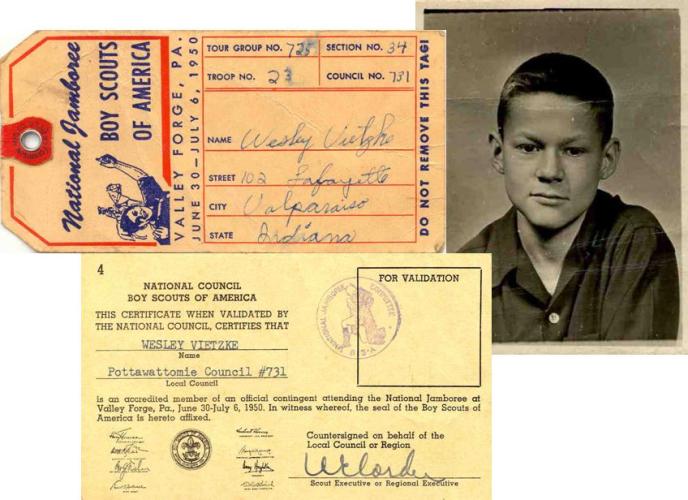 National Jamboree
BOY SCOUTS
OF AMERICA
VALLEY FORGE, PA.
JUNE 30—JULY 6, 1950
TOUR GROUP NO. 725 SECTION NO. 34
TROOP NO. 23 COUNCIL NO. 731
NAME Wesley Vietzke
STREET 102 Lafayette
CITY Valparaiso
STATE Indiana
DO NOT REMOVE THIS TAG!
4
NATIONAL COUNCIL
BOY SCOUTS OF AMERICA
THIS CERTIFICATE WHEN VALIDATED BY
THE NATIONAL COUNCIL, CERTIFIES THAT
WESLEY VIETZKE
Name
Pottawattomie Council #731
Local Council
FOR VALIDATION
NATIONAL JAMBOREE COMMITTEE
B·S·A
is an accredited member of an official contingent attending the National Jamboree at
Valley Forge, Pa., June 30-July 6, 1950. In witness whereof, the seal of the Boy Scouts of
America is hereto affixed.
Countersigned on behalf of the
Local Council or Region
Scout Executive or Regional Executive